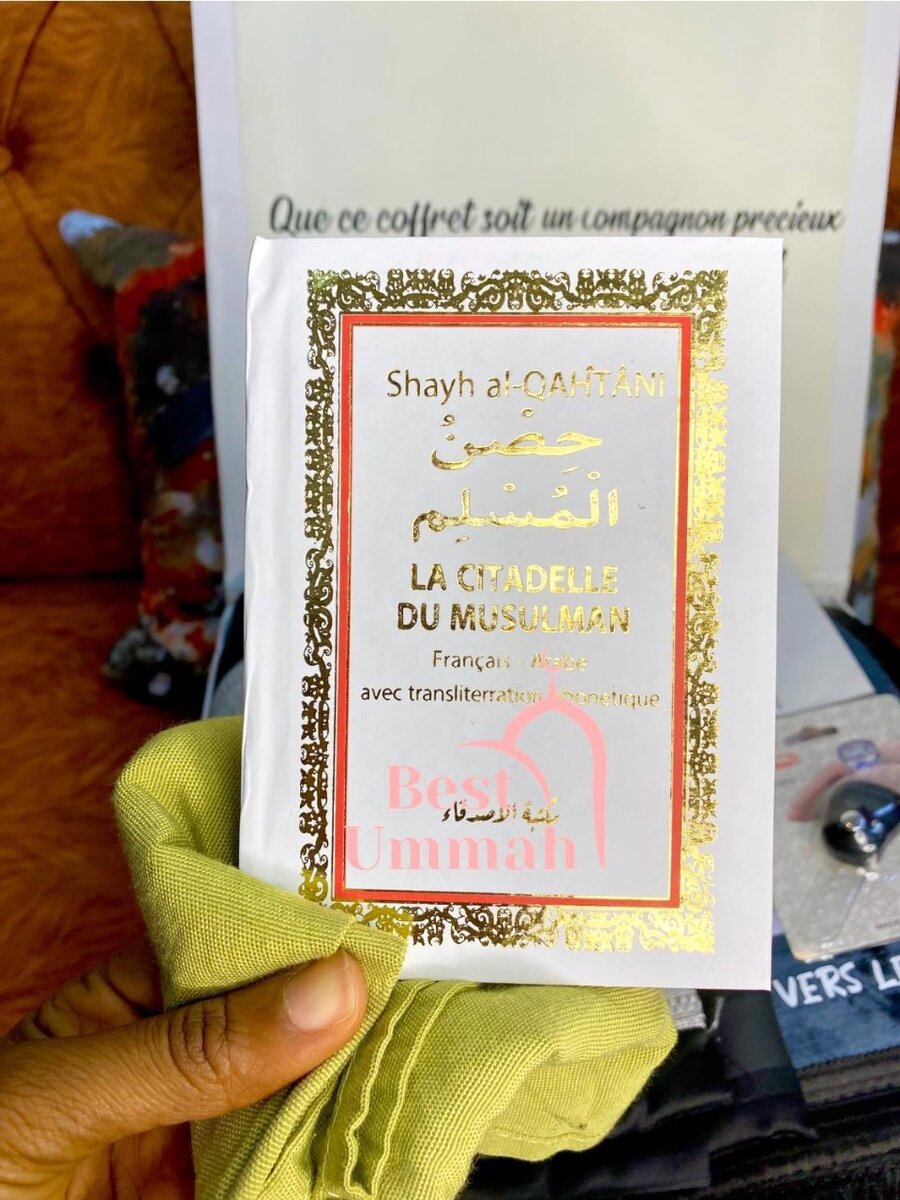 Que ce coffret soit un compagnon precieux
Shayh al-QAHTÂNI
حِصْنُ
الْمُسْلِمِ
LA CITADELLE
DU MUSULMAN
Français - Arabe
avec transliterration phonetique
Best
مكتبة الاصدقاء
Ummah
VERS LE